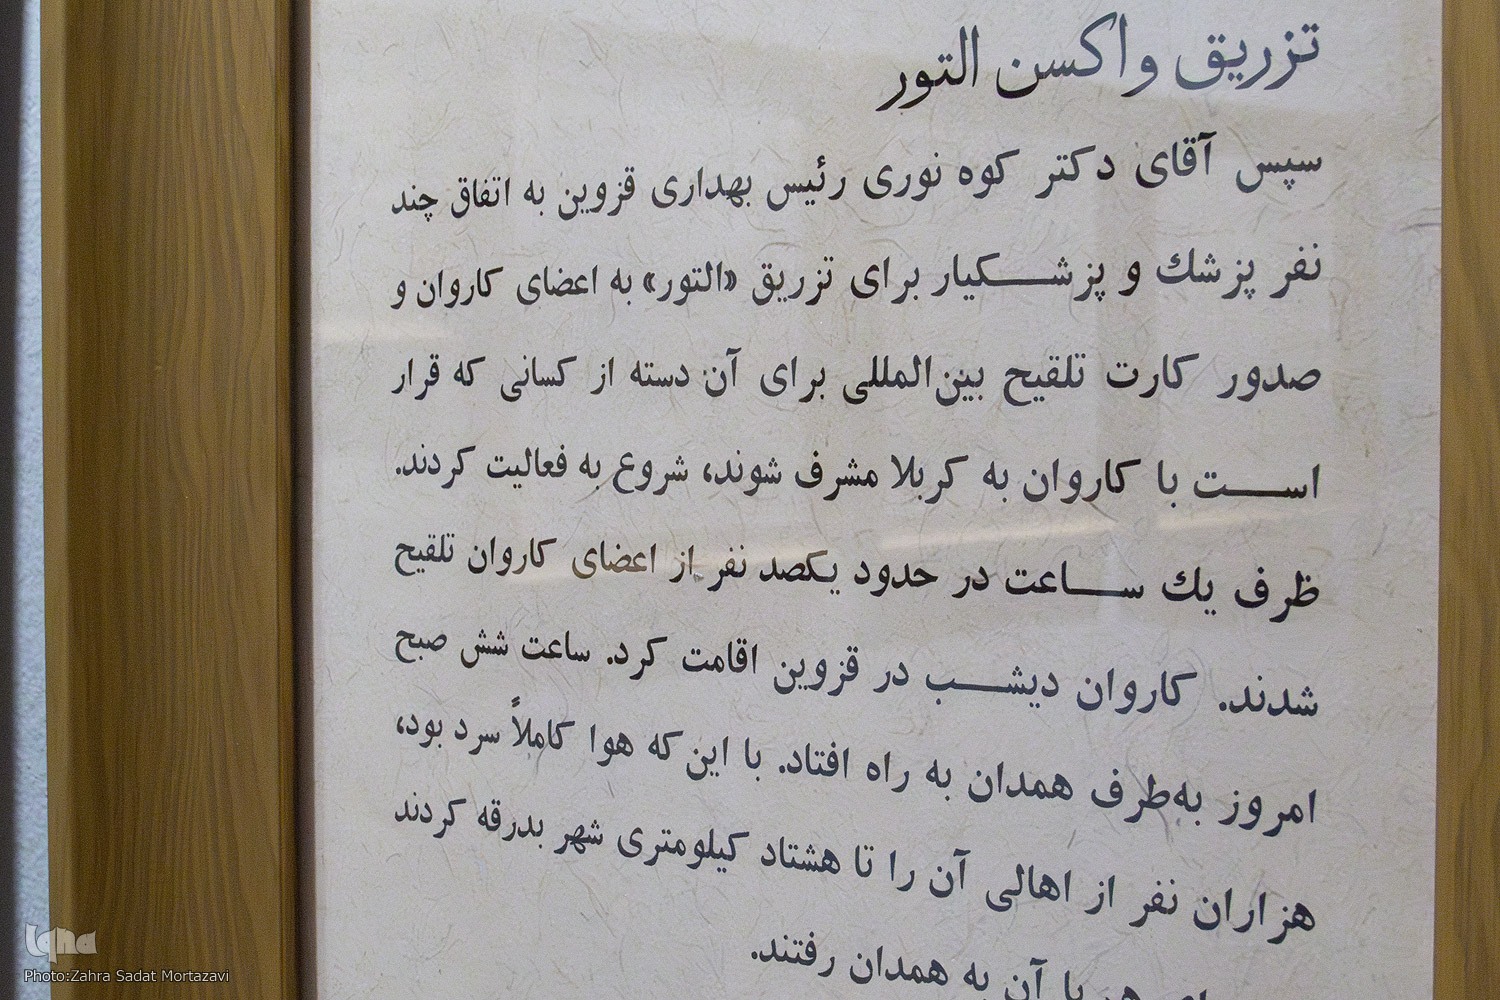 تزریق واکسن التور
سپس آقای دکتر کوه نوری رئیس بهداری قزوین به اتفاق چند
نفر پزشك و پزشـــکیار برای تزریق «التور» به اعضای کاروان و
صدور کارت تلقیح بین‌المللی برای آن دسته از کسانی که قرار
اســـت با کاروان به کربلا مشرف شوند، شروع به فعالیت کردند.
ظرف یك ســـاعت در حدود یکصد نفر از اعضای کاروان تلقیح
شدند. کاروان دیشـــب در قزوین اقامت کرد. ساعت شش صبح
امروز به‌طرف همدان به راه افتاد. با این‌که هوا کاملاً سرد بود،
هزاران نفر از اهالی آن را تا هشتاد کیلومتری شهر بدرقه کردند
با آن به همدان رفتند.
iqna
Photo:Zahra Sadat Mortazavi